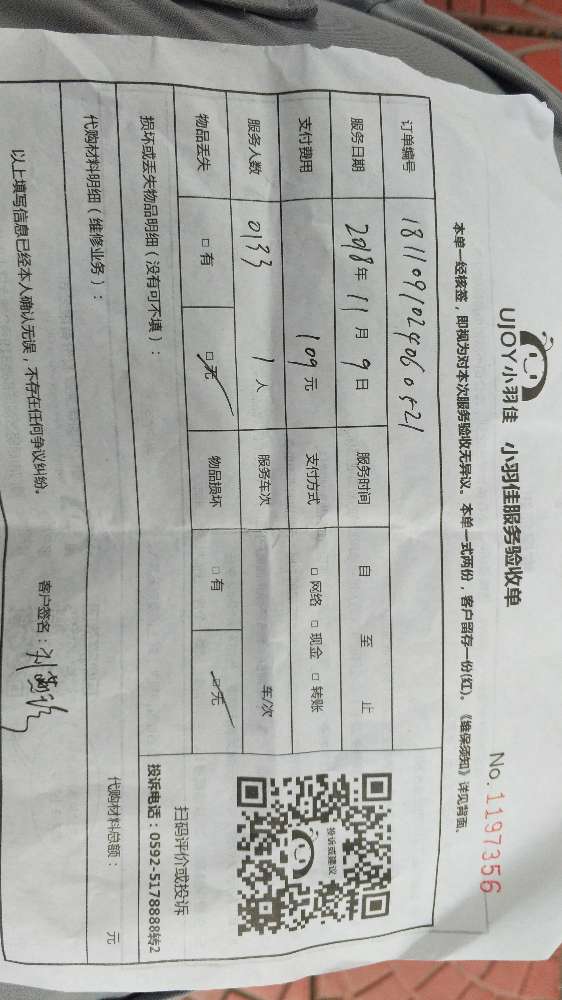 UJOY小羽佳 小羽佳服务验收单
No. 1197356
本单一经核签，即视为对本次服务验收无异议。本单一式两份，客户留存一份(红)。《维保须知》详见背面。
订单编号 1811091024060521
服务日期 2018年 11月 9日 服务时间 自 至 止
支付费用 109元 支付方式 □ 网络 □ 现金 □ 转账
服务人数 0133 1人 服务车次 车/次
物品丢失 □ 有 □ 无 物品损坏 □ 有 □ 无
投诉或建议
扫码评价或投诉
投诉电话：0592-5178888转2
损坏或丢失物品明细（没有可不填）：
代购材料明细（维修业务）： 代购材料总额： 元
以上填写信息已经本人确认无误，不存在任何争议纠纷。
客户签名：